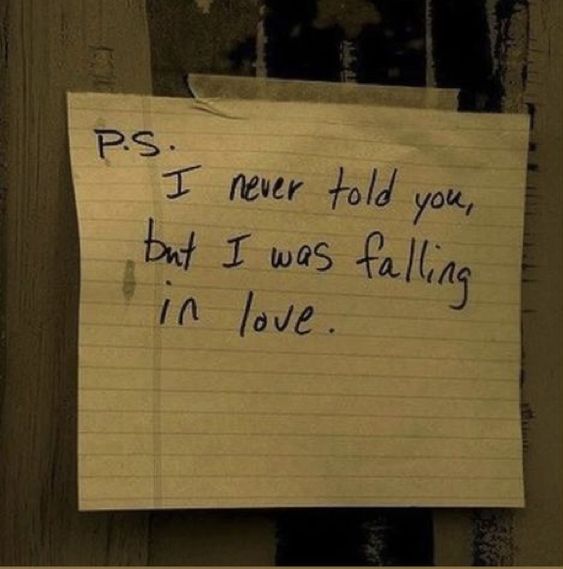 P.S.
I never told you,
but I was falling
in love.